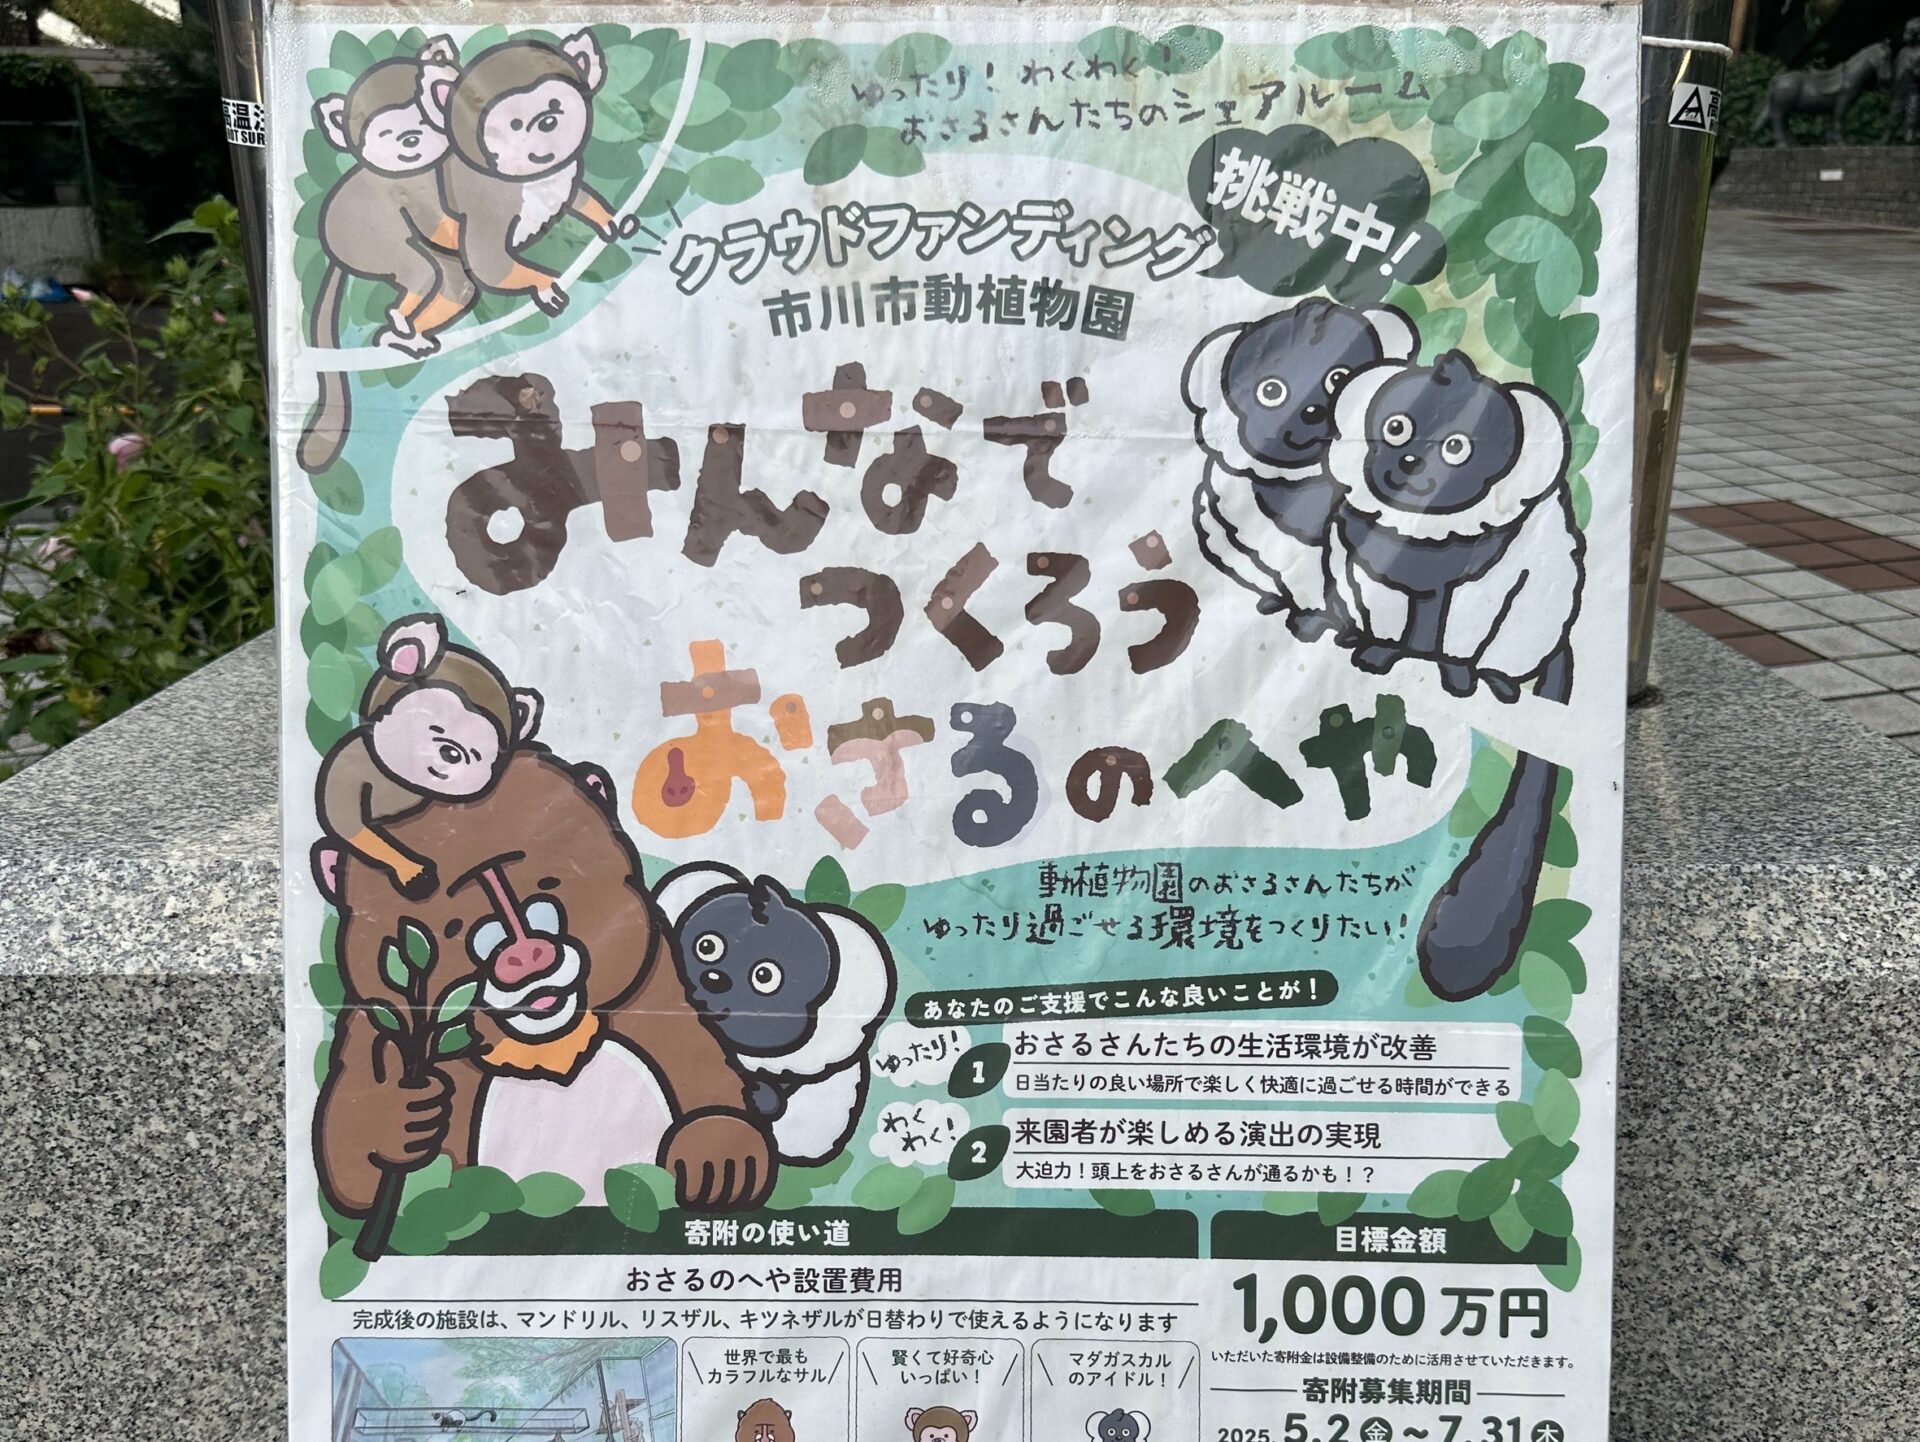 ゆったり！わくわく！
おさるさんたちのシェアルーム
クラウドファンディング
挑戦中！
市川市動植物園
みんなで
つくろう
おさるのへや
動植物園のおさるさんたちが
ゆったり過ごせる環境をつくりたい！
あなたのご支援でこんな良いことが！
ゆったり！
1
おさるさんたちの生活環境が改善
日当たりの良い場所で楽しく快適に過ごせる時間ができる
わく
わく！
2
来園者が楽しめる演出の実現
大迫力！頭上をおさるさんが通るかも！？
寄附の使い道
おさるのへや設置費用
完成後の施設は、マンドリル、リスザル、キツネザルが日替わりで使えるようになります
世界で最も
カラフルなサル
賢くて好奇心
いっぱい！
マダガスカル
のアイドル！
目標金額
1,000万円
いただいた寄附金は設備整備のために活用させていただきます。
寄附募集期間
2025.5.2金～7.31木